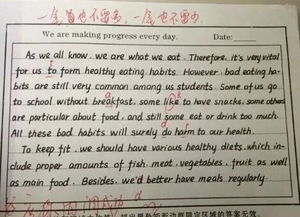 一负自也不冒号，一负也不冒号
We are making progress every day. Date:
As we all know, we are what we eat. Therefore, it's very vital
for us to form healthy eating habits. However, bad eating ha-
bits are still very common among us students. Some of us go
to school without breakfast, some like to have snacks, some others
are particular about food, and still some eat or drink too much.
All these bad habits will surely do harm to our health.
To keep fit, we should have various healthy diets, which in-
clude proper amounts of fish, meat, vegetables, fruit as well
as main food. Besides, we'd better have meals regularly.